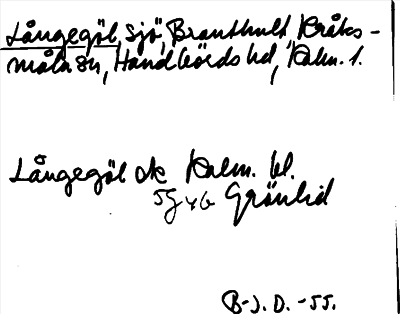 Långegöl, sjö, Branthult Kråks-
måla sn, Handbörds hd, Kalm. l.
Långegöl ek Kalm. bl.
5G 4b Grönlid
B-J. D. -55.